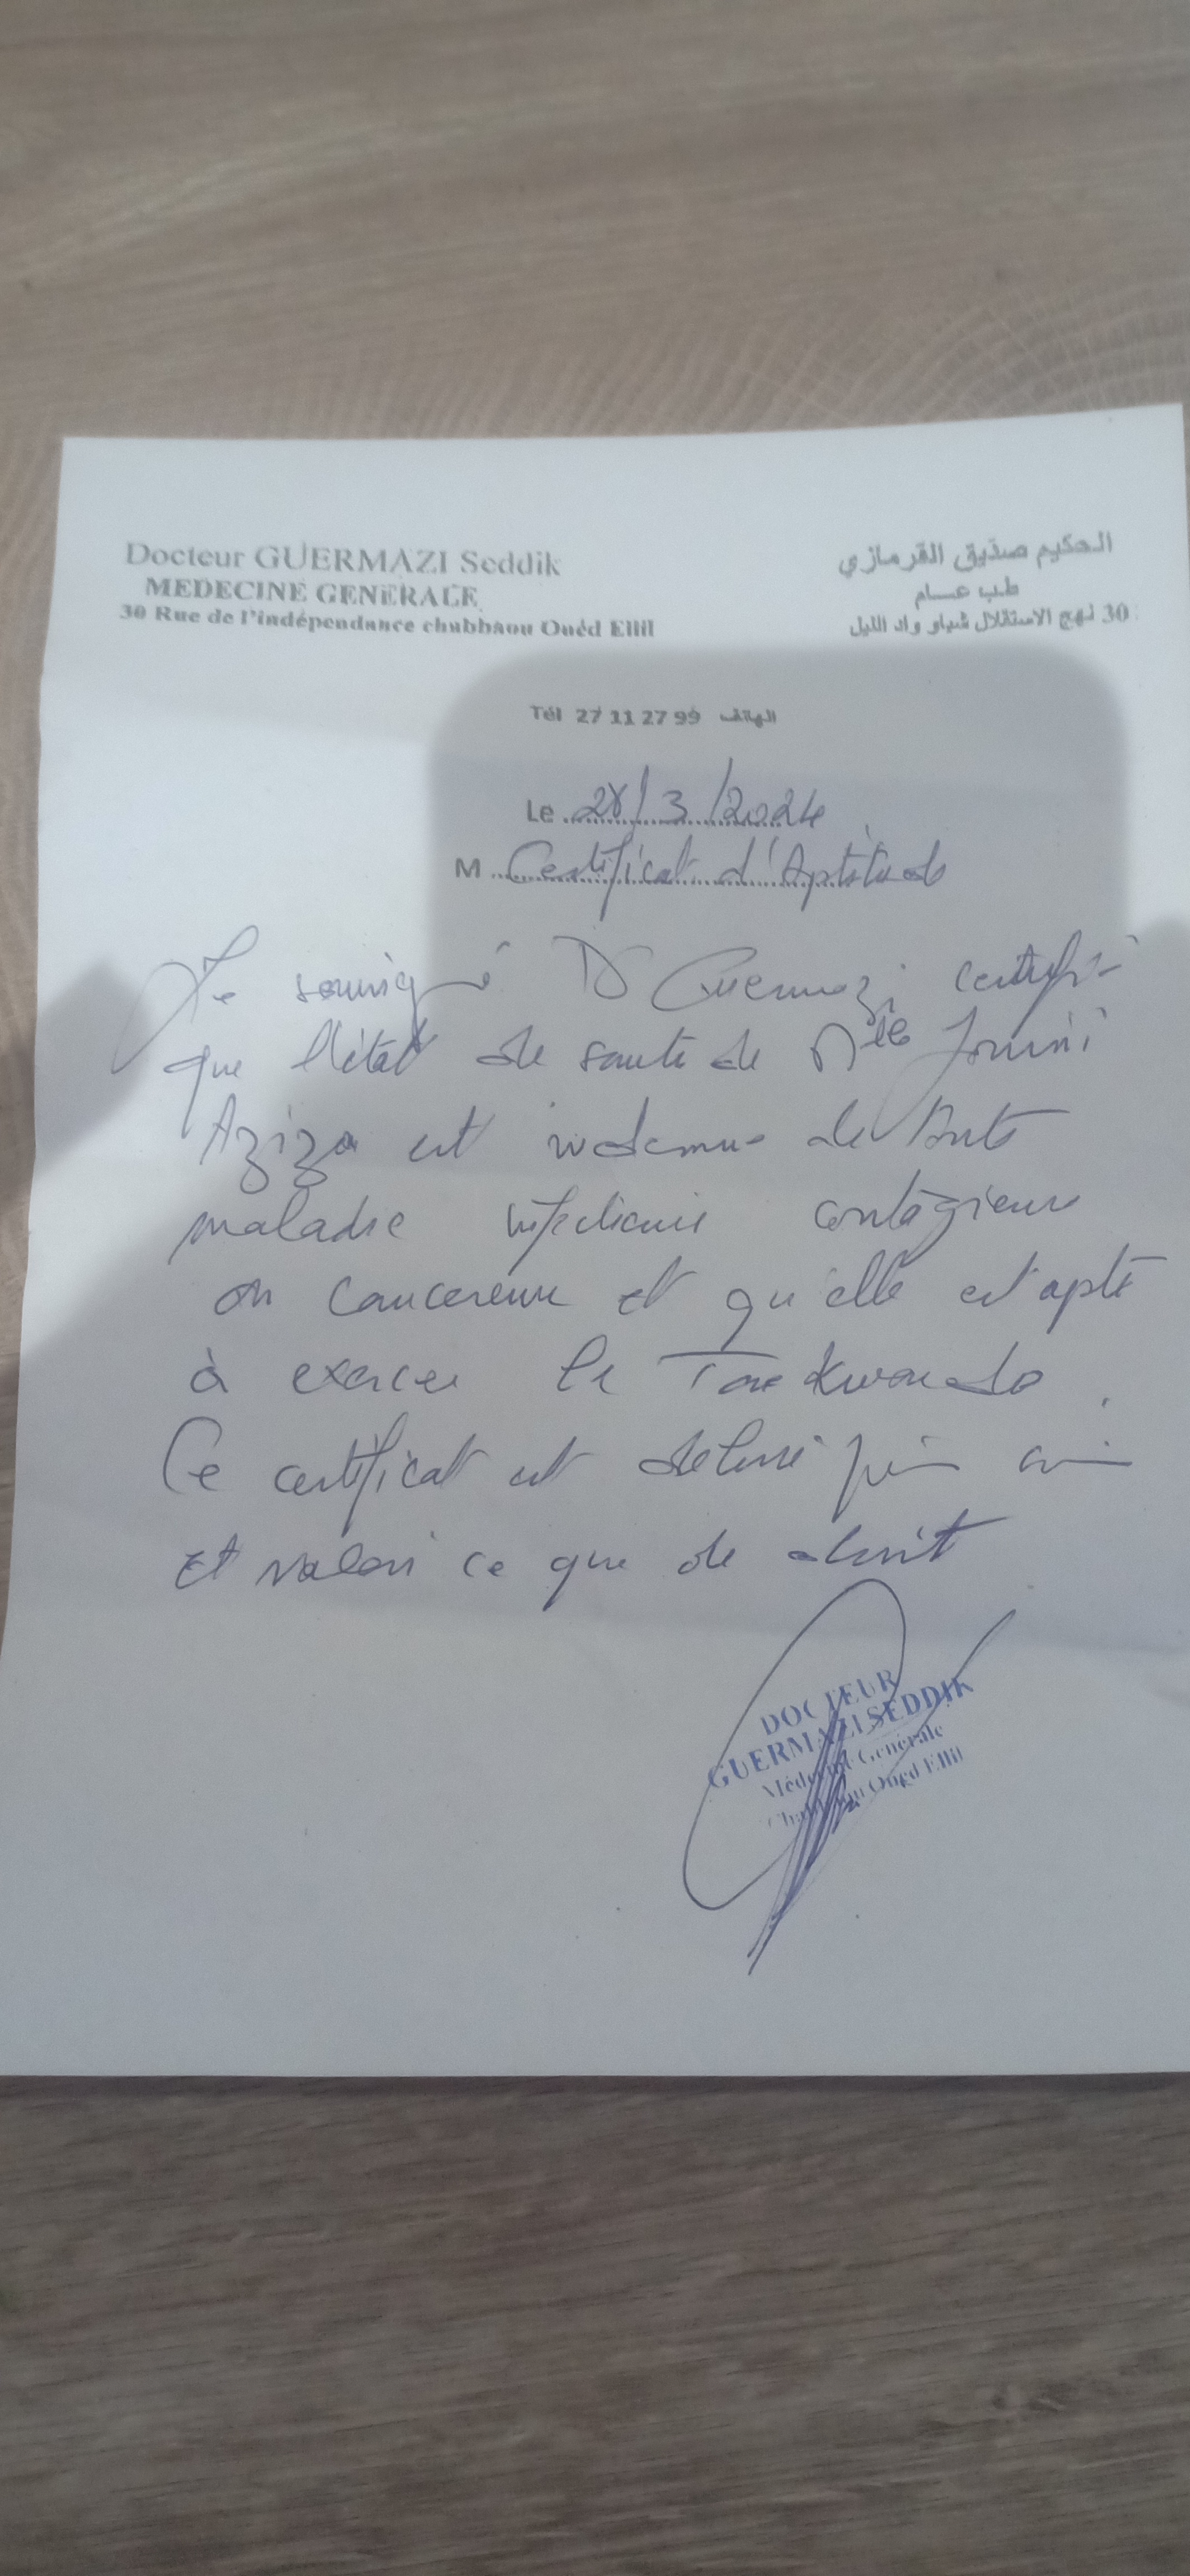 Docteur GUERMAZI Seddik
MEDECINE GENERALE
30 Rue de l'indépendance chabbaou Ouéd Ellil
الحكيم صدّيق القرمازي
طب عام
30 نهج الاستقلال شباو واد الليل
Tél 27 11 27 99 الهاتف
Le 28/3/2024
M Certificat d'Aptitude
Je soussigné Dr Guermazi certifie
que l'état de santé de Mlle
Aziza est indemne de toute
maladie infectieuse contagieuse
ou cancereuse et qu'elle est apte
à exercer le Taekwondo.
Ce certificat est délivré pour
et valoir ce que de droit
DOCTEUR
GUERMAZI SEDDIK
Médecine Générale
Oued Ellil